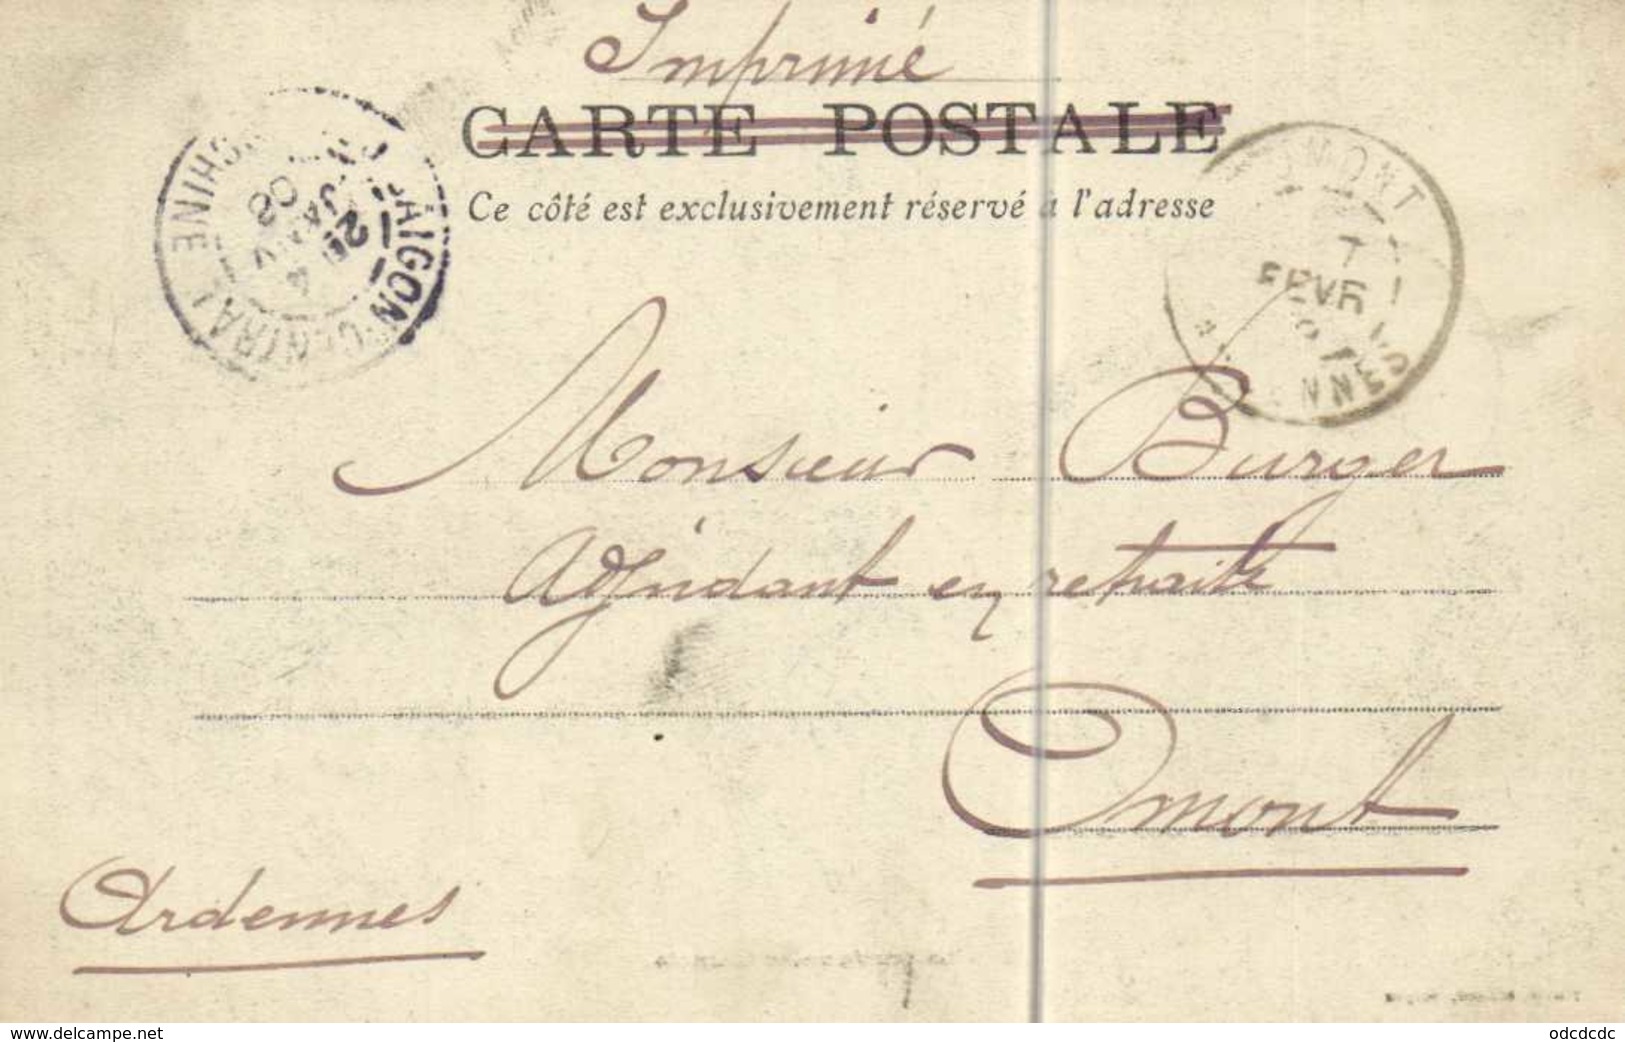 Imprimé
CARTE POSTALE
Ce côté est exclusivement réservé à l'adresse
SAIGON-CENTRAL
2E
4
JANV
08
OMONT
7
FEVR
Monsieur Burger
Adjudant en retraite
Omont
Ardennes
www.delcampe.net
odcdcdc